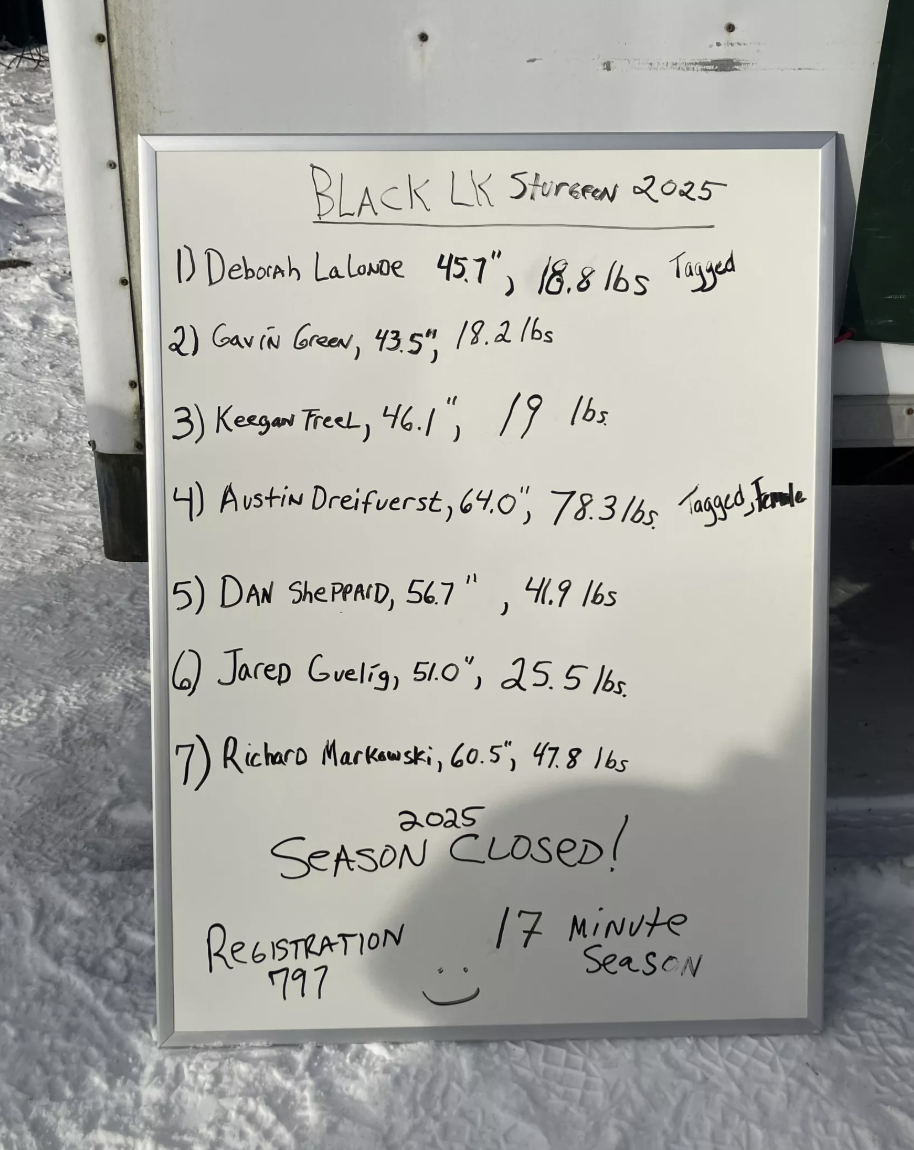 BLACK LK Sturgeon 2025
1) Deborah LaLonde 45.7", 18.8 lbs Tagged
2) Gavin Green, 43.5", 18.2 lbs
3) Keegan Freel, 46.1", 19 lbs.
4) Austin Dreifuerst, 64.0", 78.3 lbs. Tagged, Female
5) Dan Sheppard, 56.7", 41.9 lbs
6) Jared Guelig, 51.0", 25.5 lbs.
7) Richard Markowski, 60.5", 47.8 lbs
2025
SEASON CLOSED!
REGISTRATION 17 MINUTE
797 SEASON